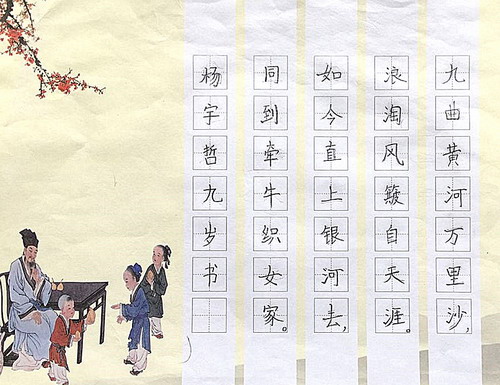 九曲黄河万里沙,
浪淘风簸自天涯。
如今直上银河去,
同到牵牛织女家。
杨宇哲九岁书